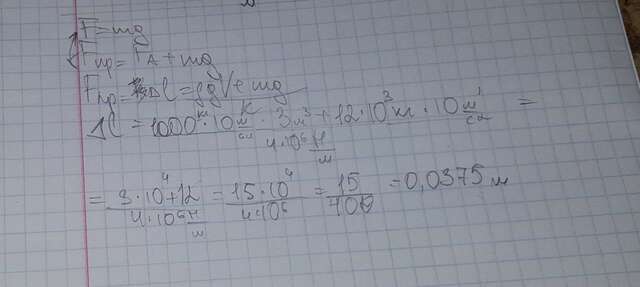 F = mg
Fпр = FA + mg
Fпр = Δl = ρgV + mg
Δl = 1000 кг · 10 м/с² · 3 м³ + 12 · 10³ кг · 10 м/с² / 4 · 10⁶ Н/м =
= 3 · 10⁴ + 12 / 4 · 10⁶ Н/м = 15 · 10⁴ / 4 · 10⁶ = 15 / 400 = 0,0375 м